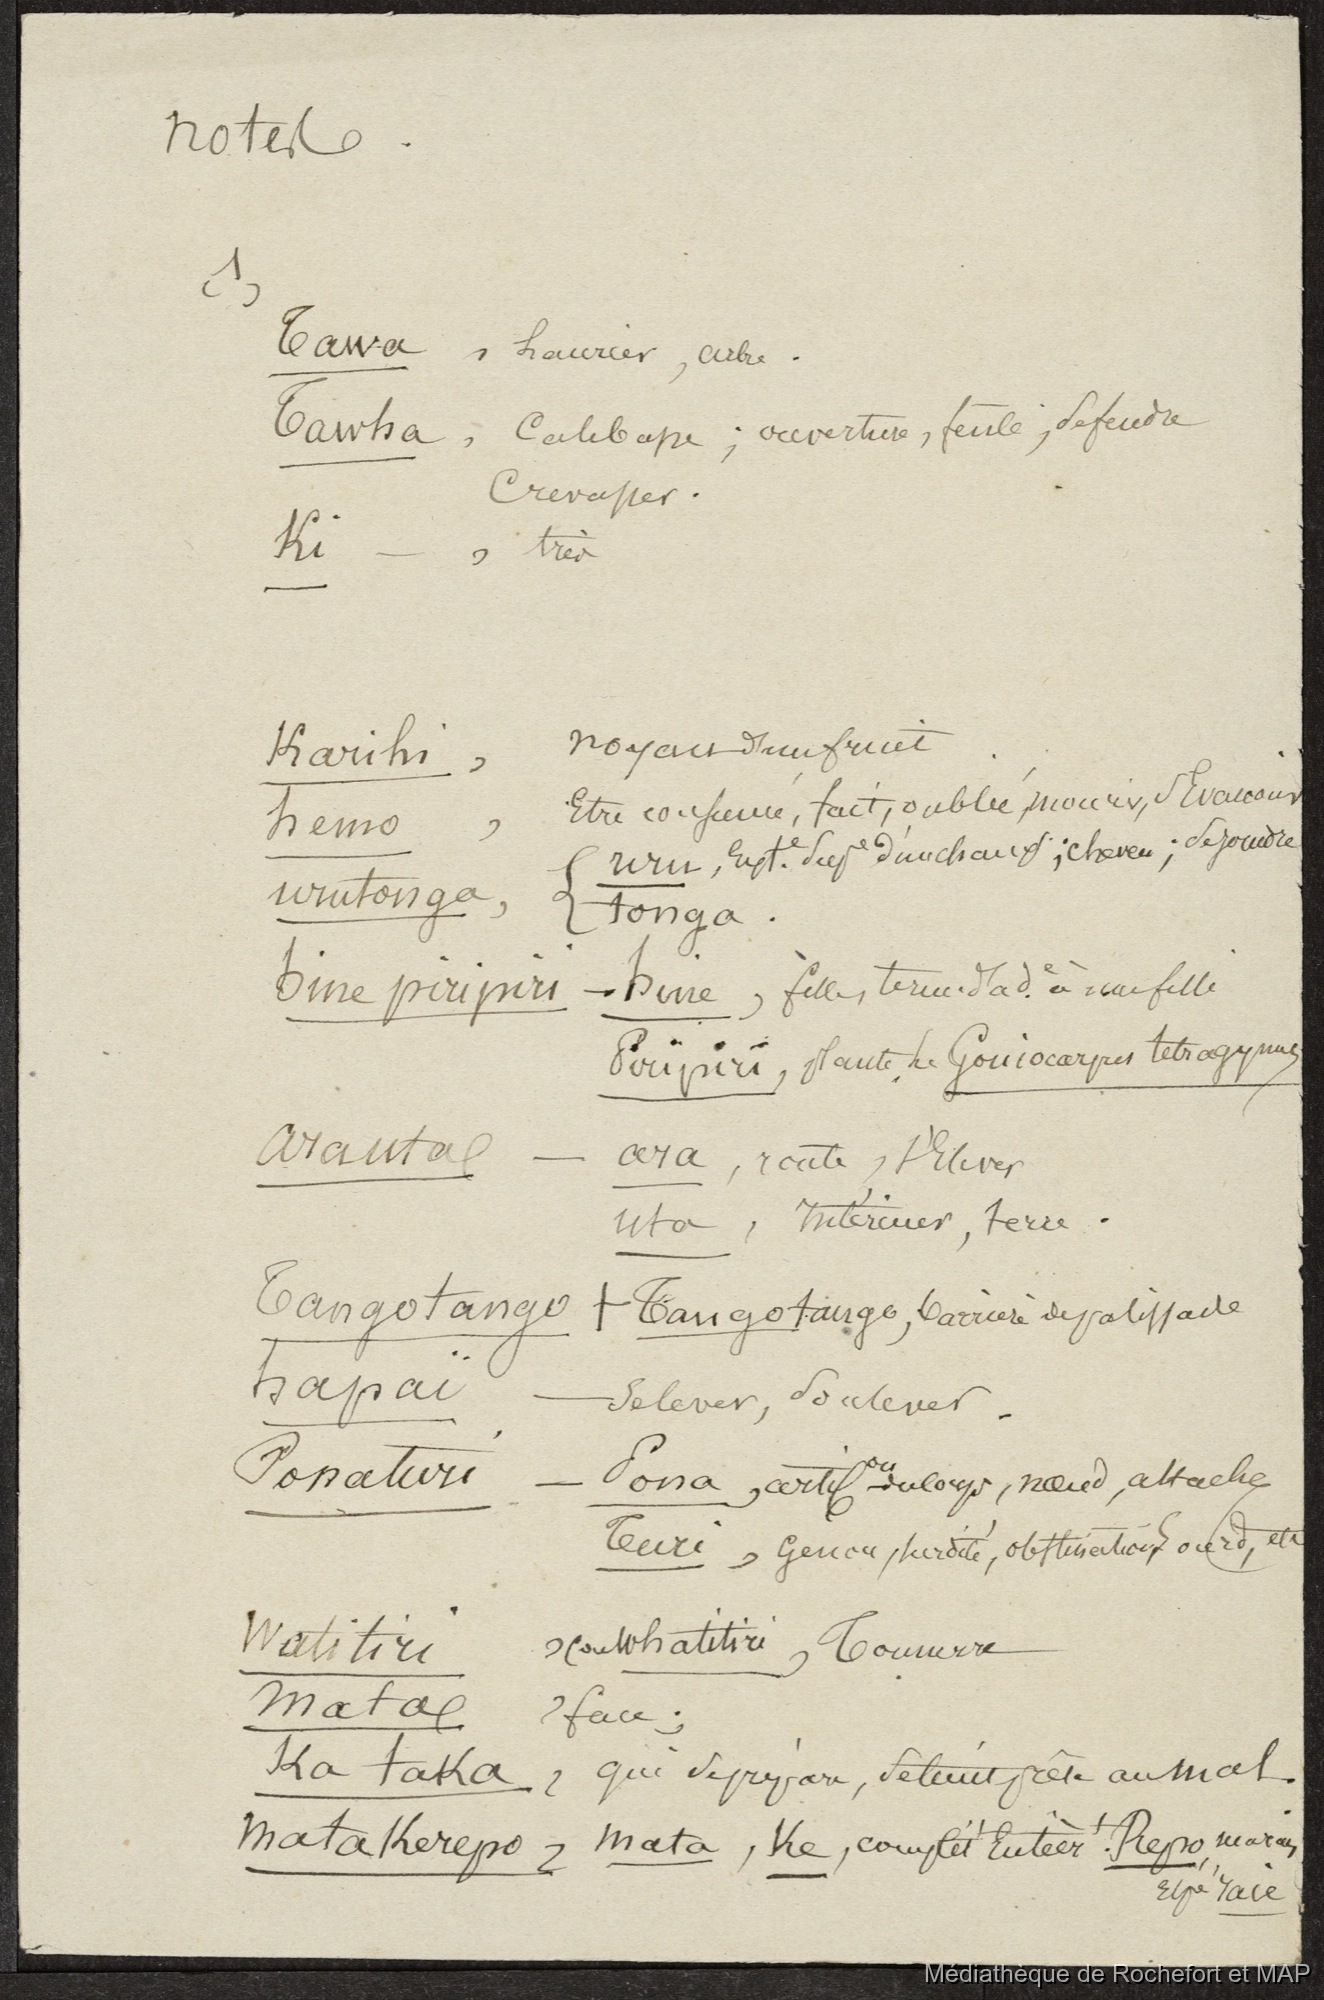 notes.
(1)
Tawa, Laurier, arbre.
Tawha, Calebasse; ouverture, fente, se fendre
Crevasser.
Ki — , très
Karihi, noyau d'un fruit
hemo, Etre consumé, fait, oublié, mourir, s'Evanouir
urutonga, { uru, d'un chauf; cheveu; se joindre
tonga.
hine piripiri - hine, fille, terme d'ad.e à une fille
Piripiri, plante, le Goniocarpus tetragynus
arauta — ara, route, s'Elever
uta, Intérieur, terre.
Tangotango + Tangotango, barrière de palissade
hapaï — se lever, soulever.
Ponaturi — Pona, articon du corps, nœud, attache
Turi, Genou, surdité, obstination, sourd, etc
Watitiri, (ou Whatitiri, Tonnerre
mata, face;
Ka taka, qui se prépare, se tient prête au mal.
matakerepo, mata, Ke, complèt Entièrt. Repo, marais
Espe Taie
Médiathèque de Rochefort et MAP